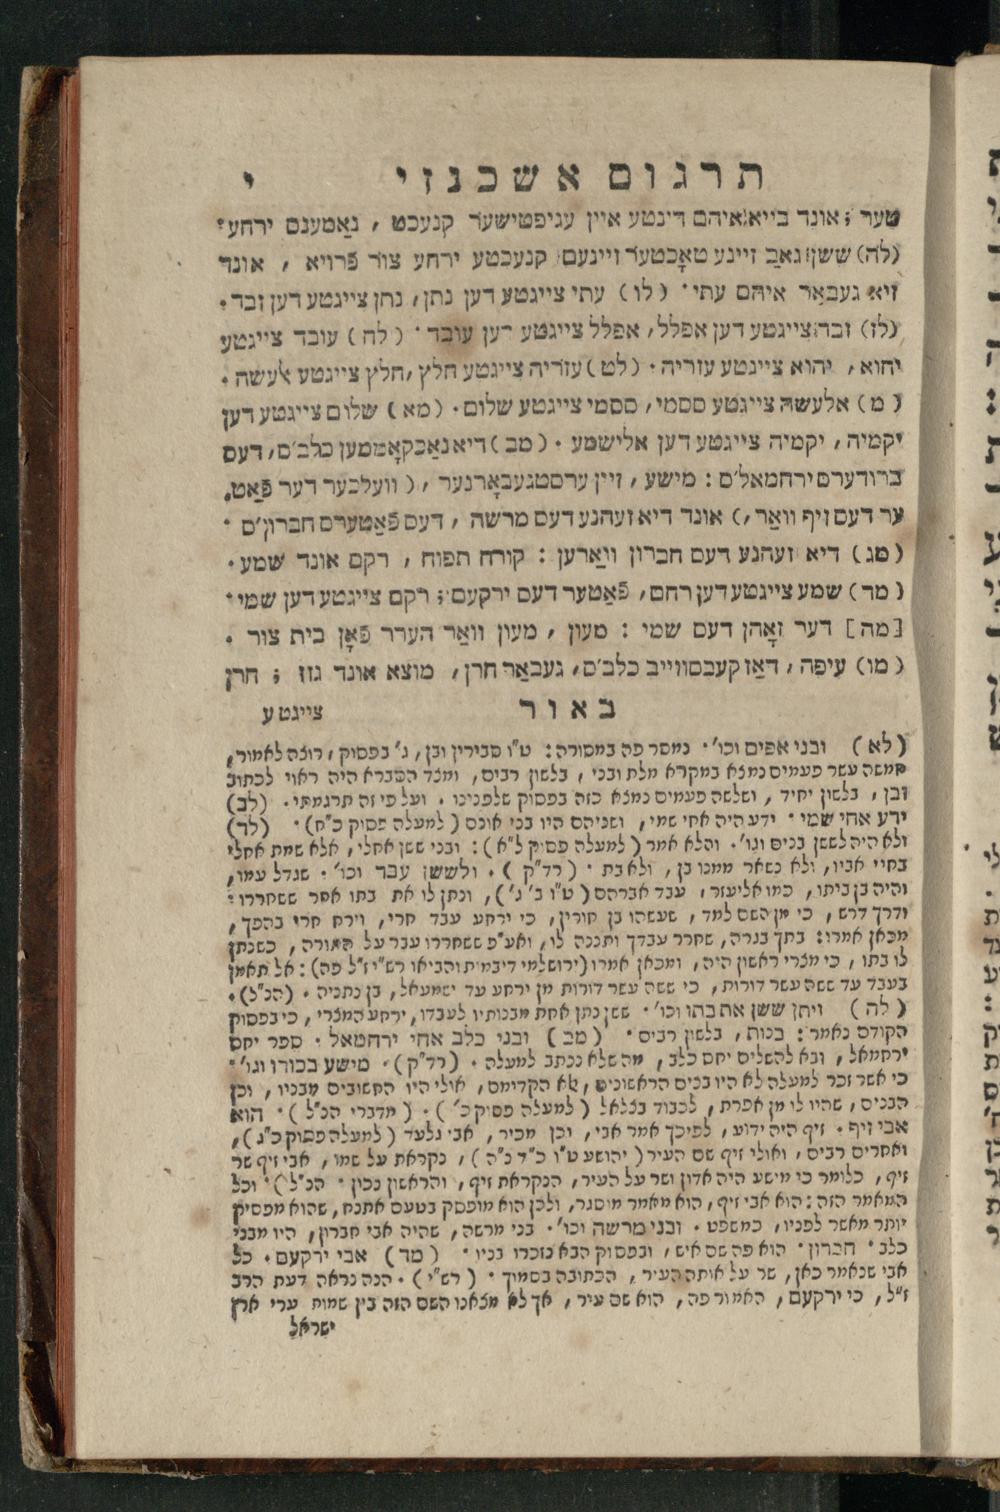 תרגום אשכנזי י
טער; אונד בייא איהם דינטע איין עגיפטישער קנעכט, נאַמענס ירחע:
(לה) ששן גאב זיינע טאָכטער זיינעם קנעכטע ירחע צור פֿרויא, אונד
זיא געבאַר איהם עתי. (לו) עתי צייגטע דען נתן, נתן צייגטע דען זבד.
(לז) זבד צייגטע דען אפלל, אפלל צייגטע דען עובד. (לח) עובד צייגטע
יהוא, יהוא צייגטע עזריה. (לט) עזריה צייגטע חלץ, חלץ צייגטע אלעשה.
(מ) אלעשה צייגטע ססמי, ססמי צייגטע שלום. (מא) שלום צייגטע דען
יקמיה, יקמיה צייגטע דען אלישמע. (מב) דיא נאַכקאָממען כלב'ס, דעס
ברודערס ירחמאל'ס: מישע, זיין ערסטגעבאָרנער, (וועלכער דער פֿאַט,
ער דעס זיף וואַר,) אונד דיא זעהנע דעס מרשה, דעס פֿאַטערס חברון'ס.
(מג) דיא זעהנע דעס חברון וואַרען: קורח תפוח, רקם אונד שמע.
(מד) שמע צייגטע דען רחם, פֿאַטער דעס ירקעם; רקם צייגטע דען שמי.
[מה] דער זאָהן דעס שמי: מעון, מעון וואַר הערר פֿאָן בית צור.
(מו) עיפה, דאַז קעבסווייב כלב'ס, געבאַר חרן, מוצא אונד גזז; חרן
באור צייגטע
(לא) ובני אפים וכו'. נמסר פה במסורה: ט"ו סבירין ובן, ג' בפסוק, רוצה לאמור,
חמשה עשר פעמים נמצא במקרא מלת ובני, בלשון רבים, ומצד הסברא היה ראוי לכתוב
ובן, בלשון יחיד, ושלשה פעמים נמצא כזה בפסוק שלפנינו. ועל פי זה תרגמתי. (לב)
ידע אחי שמי. ידע היה אחי שמי, ושניהם היו בני אונם (למעלה פסוק כ"ח). (לד)
ולא היה לששן בנים וגו'. והלא אמר (למעלה פסוק ל"א): ובני ששן אחלי, אלא שמת אחלי
בחיי אביו, ולא נשאר ממנו בן, ולא בת. (רד"ק). ולששן עבד וכו'. שגדל עמו,
והיה בן ביתו, כמו אליעזר, עבד אברהם (ט"ו ב' ג'), ונתן לו את בתו אחר ששחררו:
ודרך דרש, כי מן השם למד, שעשהו בן חורין, כי ירחע עבד חרי, וירח חרי בהפך,
מכאן אמרו: בתך בגרה, שחרר עבדך ותננה לו, ואע"פ ששחררו עבר על התורה, כשנתן
לו בתו, כי מצרי ראשון היה, ומכאן אמרו (ירושלמי דיבמית והביאו רש"י ז"ל פה): אל תאמן
בעבד עד ששה עשר דורות, כי ששה עשר דורות מן ירחע עד ישמעאל, בן נתניה. (הנ"ל).
(לה) ויתן ששן את בתו וכו'. ששן נתן אחת מבנותיו לעבדו, ירחע המצרי, כי בפסוק
הקודם נאמר: בנות, בלשון רבים. (מב) ובני כלב אחי ירחמאל. ספר יחס
ירחמאל, ובא להשלים יחס כלב, מה שלא נכתב למעלה. (רד"ק). מישע בכורו וגו'.
כי אשר זכר למעלה לא היו בנים הראשונים, לא הקדימם, אולי היו החשובים מבניו, וכן
הבנים, שהיו לו מן אפרת, לכבוד בצלאל (למעלה פסוק כ'). (מדברי הנ"ל). הוא
אבי זיף. זיף היה ידוע, לפיכך אמר אבי, וכן מכיר, אבי גלעד (למעלה פסוק כ"ג),
ואחרים רבים, ואולי זיף שם העיר (יהושע ט"ו כ"ד נ"ה), נקראת על שמו, אבי זיף שר
זיף, כלומר כי מישע היה אדון ושר על העיר, הנקראת זיף, והראשון נכון. הנ"ל). וכל
המאמר הזה: הוא אבי זיף, הוא מאמר מוסגר, ולכן הוא מופסק בטעם אתנח, שהוא מפסיק
יותר מאשר לפניו, כמשפט. ובני מרשה וכו'. בני מרשה, שהיה אבי חברון, היו מבני
כלב. חברון. הוא פה שם איש, ובפסוק הבא נזכרו בניו. (מד) אבי ירקעם. כל
אבי שנאמר כאן, שר על אותה העיר, הכתובה בסמוך. (רש"י). הנה נראה דעת הרב
ז"ל, כי ירקעם, האמור פה, הוא שם עיר, אך לא מצאנו השם הזה בין שמות ערי ארץ
ישראל